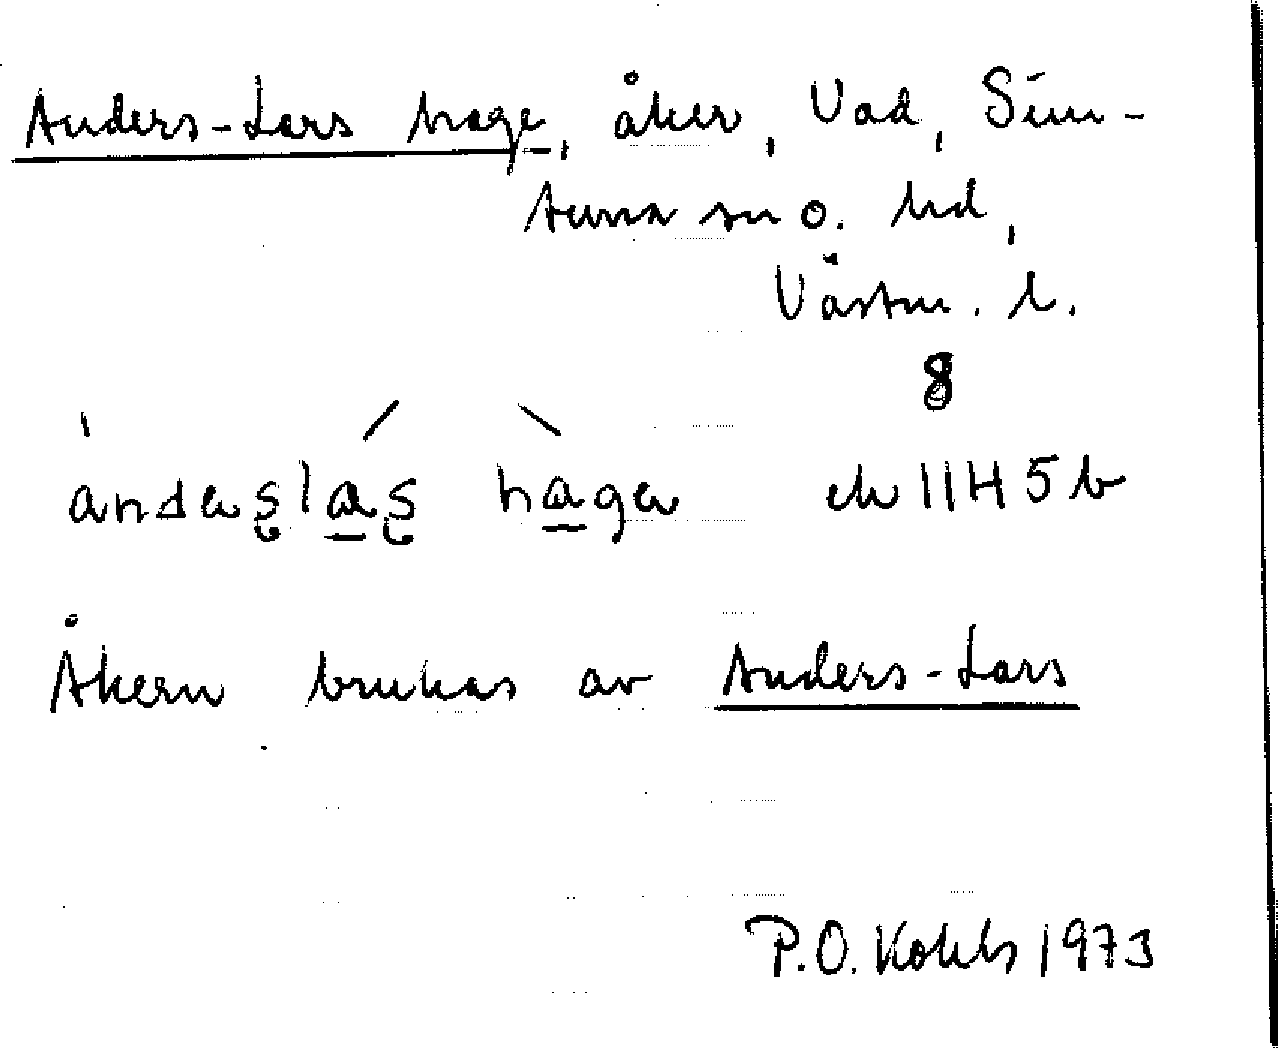 Anders-Lars hage, åker, Vad, Sim-
tuna sn o. hd,
Västm. l.
8
andəʂlaʂ hagə ek 11H5b
Åkern brukas av Anders-Lars
P.O. Kohls 1973